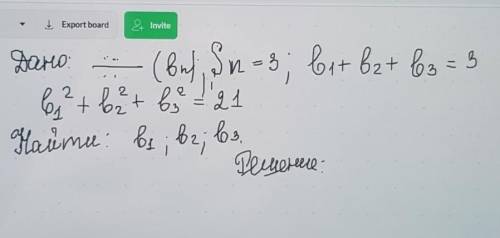 Export board Invite
Дано: ∺ (bn), Sn = 3; b1 + b2 + b3 = 3
b1² + b2² + b3² = 21
Найти: b1; b2; b3.
Решение: